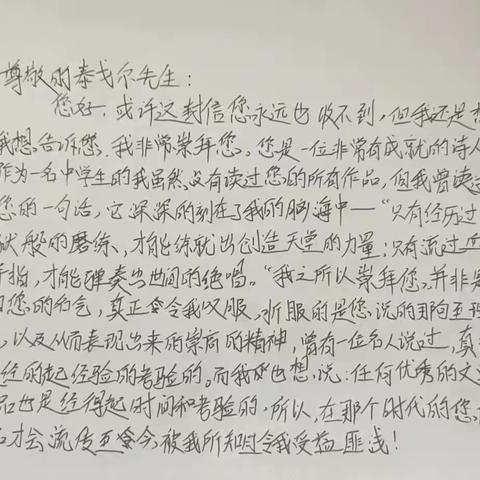 尊敬的泰戈尔先生：
您好，或许这封信您永远也收不到，但我还是想
我想告诉您，我非常崇拜您。您是一位非常有成就的诗人
作为一名中学生的我虽然没有读过您的所有作品，但我曾读过
您的一句话，它深深的刻在了我的脑海中—“只有经历过
狱般的磨练，才能练就出创造天堂的力量；只有流过血
手指，才能弹奏出世间的绝唱。“我之所以崇拜您，并非是
因您的名气，真正令我叹服、折服的是您说的那句至理
，以及从而表现出来的崇高的精神，曾有一位名人说过，真
经的起经验的考验的。而我也想说：任何优秀的文
品也是经得起时间和考验的，所以，在那个时代的您，
才会流传至今，被我所知过令我受益匪浅！